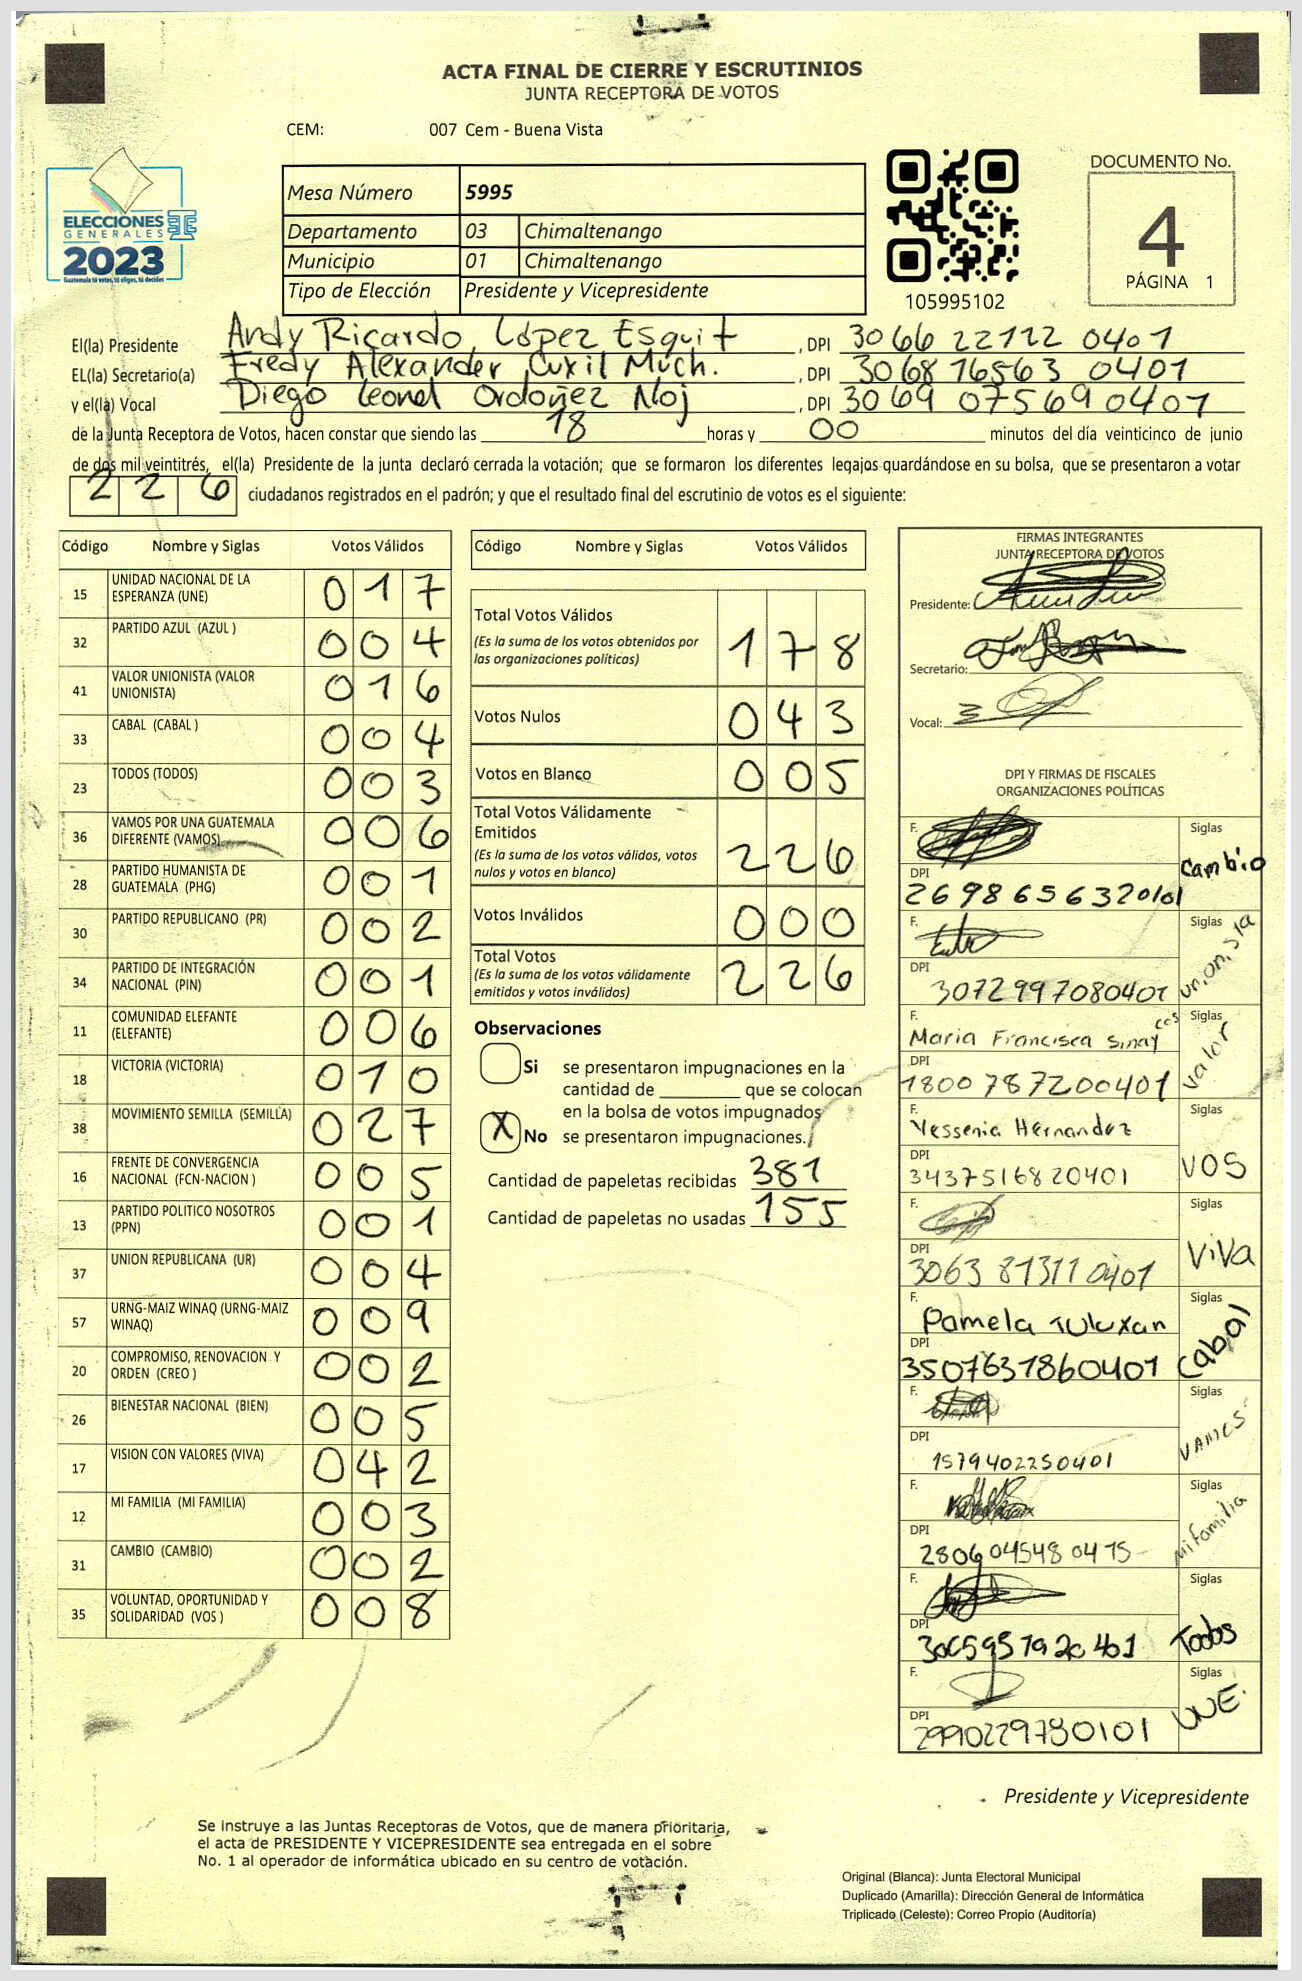 ACTA FINAL DE CIERRE Y ESCRUTINIOS
JUNTA RECEPTORA DE VOTOS
CEM: 007 Cem - Buena Vista
ELECCIONES
GENERALES
2023
Guatemala tú votas, tú eliges, tú decides
Mesa Número 5995
Departamento 03 Chimaltenango
Municipio 01 Chimaltenango
Tipo de Elección Presidente y Vicepresidente
105995102
DOCUMENTO No.
4
PÁGINA 1
El(la) Presidente Andy Ricardo López Esquit, DPI 3066 22122 0401
EL(la) Secretario(a) Fredy Alexander Cuxil Much., DPI 3068 16563 0401
y el(la) Vocal Diego Leonel Ordoñez Aloj, DPI 3069 07569 0401
de la Junta Receptora de Votos, hacen constar que siendo las 18 horas y 00 minutos del día veinticinco de junio
de dos mil veintitrés, el(la) Presidente de la junta declaró cerrada la votación; que se formaron los diferentes legajos guardándose en su bolsa, que se presentaron a votar
226 ciudadanos registrados en el padrón; y que el resultado final del escrutinio de votos es el siguiente:
Código Nombre y Siglas Votos Válidos
15 UNIDAD NACIONAL DE LA ESPERANZA (UNE) 017
32 PARTIDO AZUL (AZUL ) 004
41 VALOR UNIONISTA (VALOR UNIONISTA) 016
33 CABAL (CABAL ) 004
23 TODOS (TODOS) 003
36 VAMOS POR UNA GUATEMALA DIFERENTE (VAMOS) 006
28 PARTIDO HUMANISTA DE GUATEMALA (PHG) 001
30 PARTIDO REPUBLICANO (PR) 002
34 PARTIDO DE INTEGRACIÓN NACIONAL (PIN) 001
11 COMUNIDAD ELEFANTE (ELEFANTE) 006
18 VICTORIA (VICTORIA) 010
38 MOVIMIENTO SEMILLA (SEMILLA) 027
16 FRENTE DE CONVERGENCIA NACIONAL (FCN-NACION ) 005
13 PARTIDO POLITICO NOSOTROS (PPN) 001
37 UNION REPUBLICANA (UR) 004
57 URNG-MAIZ WINAQ (URNG-MAIZ WINAQ) 009
20 COMPROMISO, RENOVACION Y ORDEN (CREO ) 002
26 BIENESTAR NACIONAL (BIEN) 005
17 VISION CON VALORES (VIVA) 042
12 MI FAMILIA (MI FAMILIA) 003
31 CAMBIO (CAMBIO) 002
35 VOLUNTAD, OPORTUNIDAD Y SOLIDARIDAD (VOS ) 008
Código Nombre y Siglas Votos Válidos
Total Votos Válidos 178
(Es la suma de los votos obtenidos por
las organizaciones políticas)
Votos Nulos 043
Votos en Blanco 005
Total Votos Válidamente
Emitidos 226
(Es la suma de los votos válidos, votos
nulos y votos en blanco)
Votos Inválidos 000
Total Votos 226
(Es la suma de los votos válidamente
emitidos y votos inválidos)
Observaciones
Si se presentaron impugnaciones en la
cantidad de ________ que se colocan
en la bolsa de votos impugnados
X No se presentaron impugnaciones.
Cantidad de papeletas recibidas 381
Cantidad de papeletas no usadas 155
FIRMAS INTEGRANTES
JUNTA RECEPTORA DE VOTOS
Presidente:
Secretario:
Vocal:
DPI Y FIRMAS DE FISCALES
ORGANIZACIONES POLÍTICAS
F. Siglas Cambio
DPI 2698656320101
F. Siglas unionista
DPI 3072997080401
F. Maria Francisca Sinay Siglas Valor
DPI 1800787200401
F. Yessenia Hernandez Siglas VOS
DPI 3437516820401
F. Siglas ViVa
DPI 3063 81311 0401
F. Pamela Tuluxan Siglas Cabal
DPI 3507631860401
F. Siglas VAMOS
DPI 1579402250401
F. Siglas Mi familia
DPI 2806 04548 0415
F. Siglas Todos
DPI
F. Siglas UNE.
DPI 2990229780101
Presidente y Vicepresidente
Se instruye a las Juntas Receptoras de Votos, que de manera prioritaria,
el acta de PRESIDENTE Y VICEPRESIDENTE sea entregada en el sobre
No. 1 al operador de informática ubicado en su centro de votación.
Original (Blanca): Junta Electoral Municipal
Duplicado (Amarilla): Dirección General de Informática
Triplicado (Celeste): Correo Propio (Auditoría)